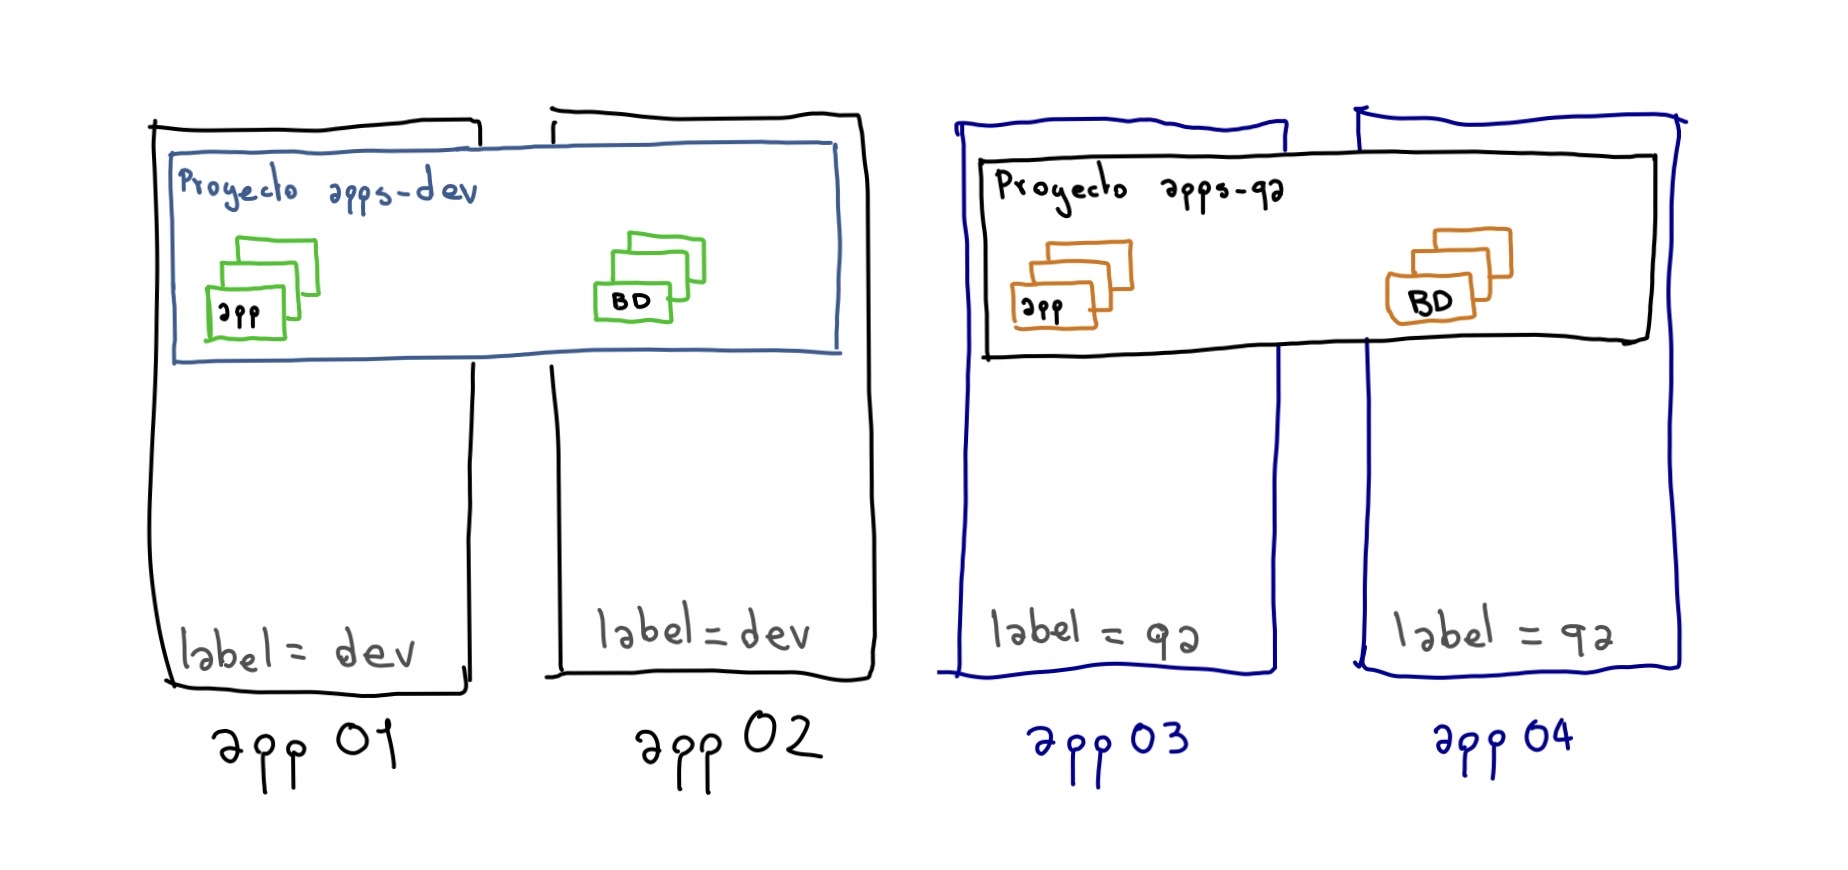 Proyecto apps-dev
app
BD
label = dev
label = dev
app 01
app 02
Proyecto apps-qa
app
BD
label = qa
label = qa
app 03
app 04